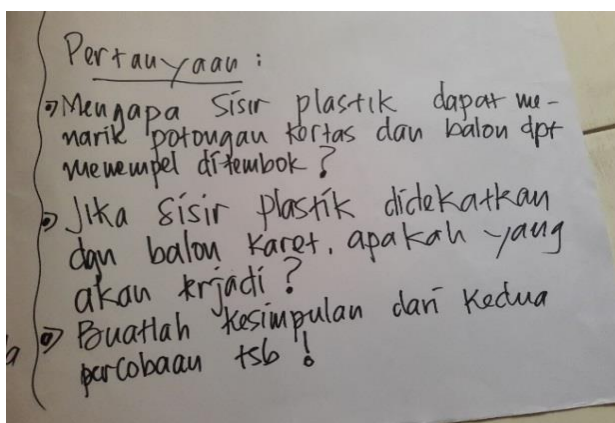 Pertanyaan :
Mengapa sisir plastik dapat me-
narik potongan kertas dan balon dpt
menempel ditembok ?
Jika sisir plastik didekatkan
dgn balon karet, apakah yang
akan terjadi ?
Buatlah kesimpulan dari kedua
percobaan tsb !